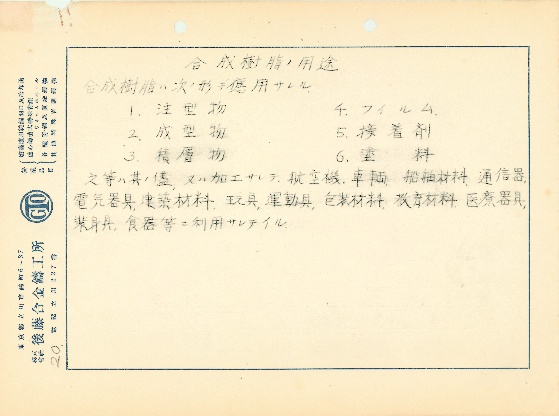 合成樹脂ノ用途
合成樹脂ハ次ノ形デ應用サレル.
1. 注型物
4. フィルム.
2. 成型物
5. 接着剤
3. 積層物
6. 塗料
之等ハ其ノ儘, 又ハ加工サレテ. 航空機. 車輌. 船舶材料, 通信器,
電気器具, 建築材料. 玩具, 運動具, 包装材料. 教育材料. 医療器具,
装身具, 食器等ニ利用サレテイル.
GTO
株式会社 後藤合金鑄工所
東京都立川市錦町6-37
電話立川227番
20